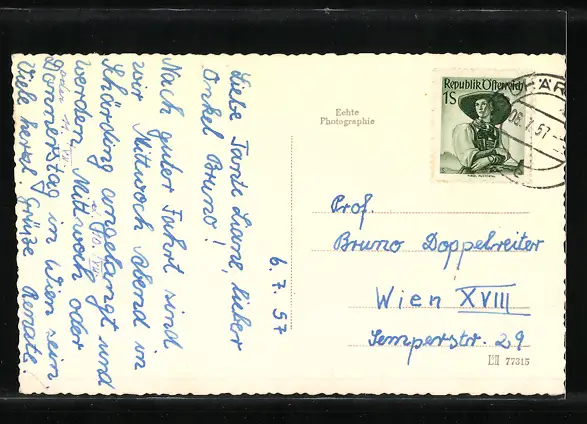 6. 7. 57
Liebe Tante Liesl, lieber
Onkel Bruno!
Nach guter Fahrt sind
wir Mittwoch Abend in
Schärding angelangt und
werden Mittwoch oder
Donnerstag in Wien sein
Viele herzl. Grüße Renate.
Echte
Photographie
Republik Österreich
1S
06.7.57
Prof.
Bruno Doppelreiter
Wien XVIII
Semperstr. 29
77315